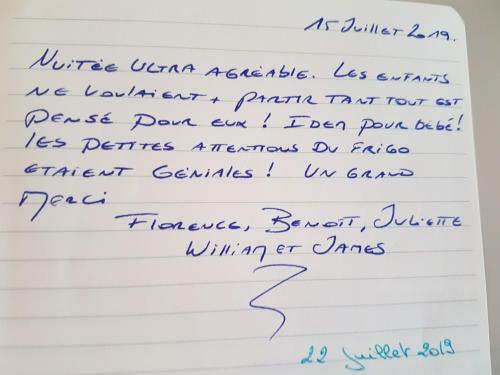 15 Juillet 2019.
Nuitée ultra agréable. Les enfants
ne voulaient + partir tant tout est
pensé pour eux ! Idem pour bébé !
les petites attentions du frigo
étaient géniales ! Un grand
Merci
Florence, Benoît, Juliette
William et James
22 juillet 2019